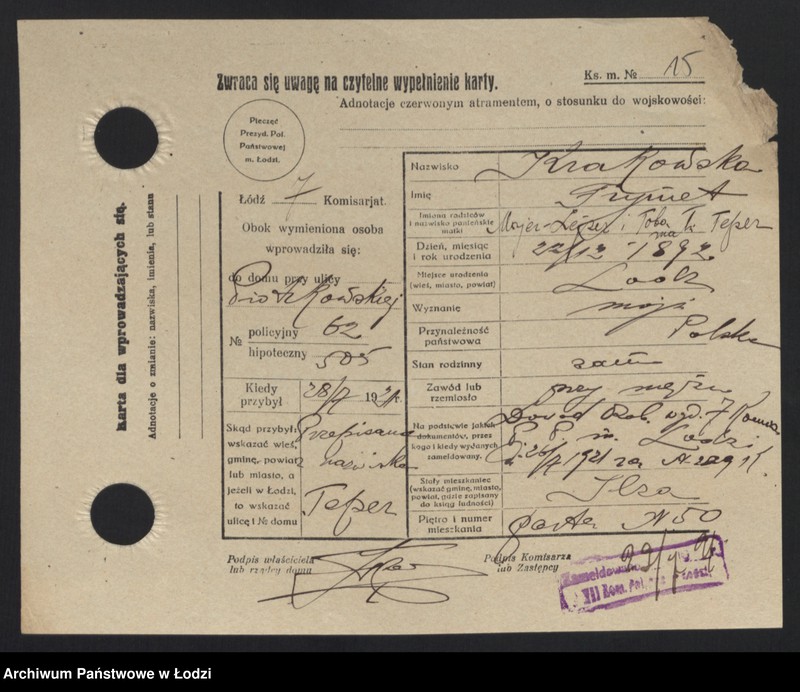 Zwraca się uwagę na czytelne wypełnienie karty.
Ks. m. № 15
Adnotacje czerwonym atramentem, o stosunku do wojskowości:
Pieczęć
Prezyd. Pol.
Państwowej
m. Łodzi.
Karta dla wprowadzających się.
Adnotacje o zmianie: nazwiska, imienia, lub stanu
Łódź 7 Komisarjat.
Obok wymieniona osoba
wprowadziła się:
do domu przy ulicy
Piotrkowskiej
№ policyjny 62
hipoteczny 505
Kiedy przybył 28/7 192
Skąd przybył:
wskazać wieś,
gminę, powiat
lub miasto, a
jeżeli w Łodzi,
to wskazać
ulicę i № domu
Przepisana
z nazwiska
Tefser
Nazwisko Krakowska
Imię Frymet
Imiona rodziców i nazwisko panieńskie matki Majer-Lejzer i Toba
Tefser
Dzień, miesiąc i rok urodzenia 22/12 1892
Miejsce urodzenia (wieś, miasto, powiat) Lodz
Wyznanie mojż
Przynależność państwowa Polska
Stan rodzinny zam
Zawód lub rzemiosło przy mężu
Na podstwie jakich dokumentów, przez kogo i kiedy wydanych sameldowany.
Dowód Osob. wyd. 7 Komis.
P. P. m. Lodzi
1921 za №
Stały mieszkaniec (wskazać gminę, miasto, powiat, gdzie zapisany do ksiąg ludności) Ilza
Piętro i numer mieszkania parter № 50
Podpis właściciela
lub rządcy domu
Podpis Komisarza
lub Zastępcy
Zameldowano
VII Kom. Pol.
Archiwum Państwowe w Łodzi